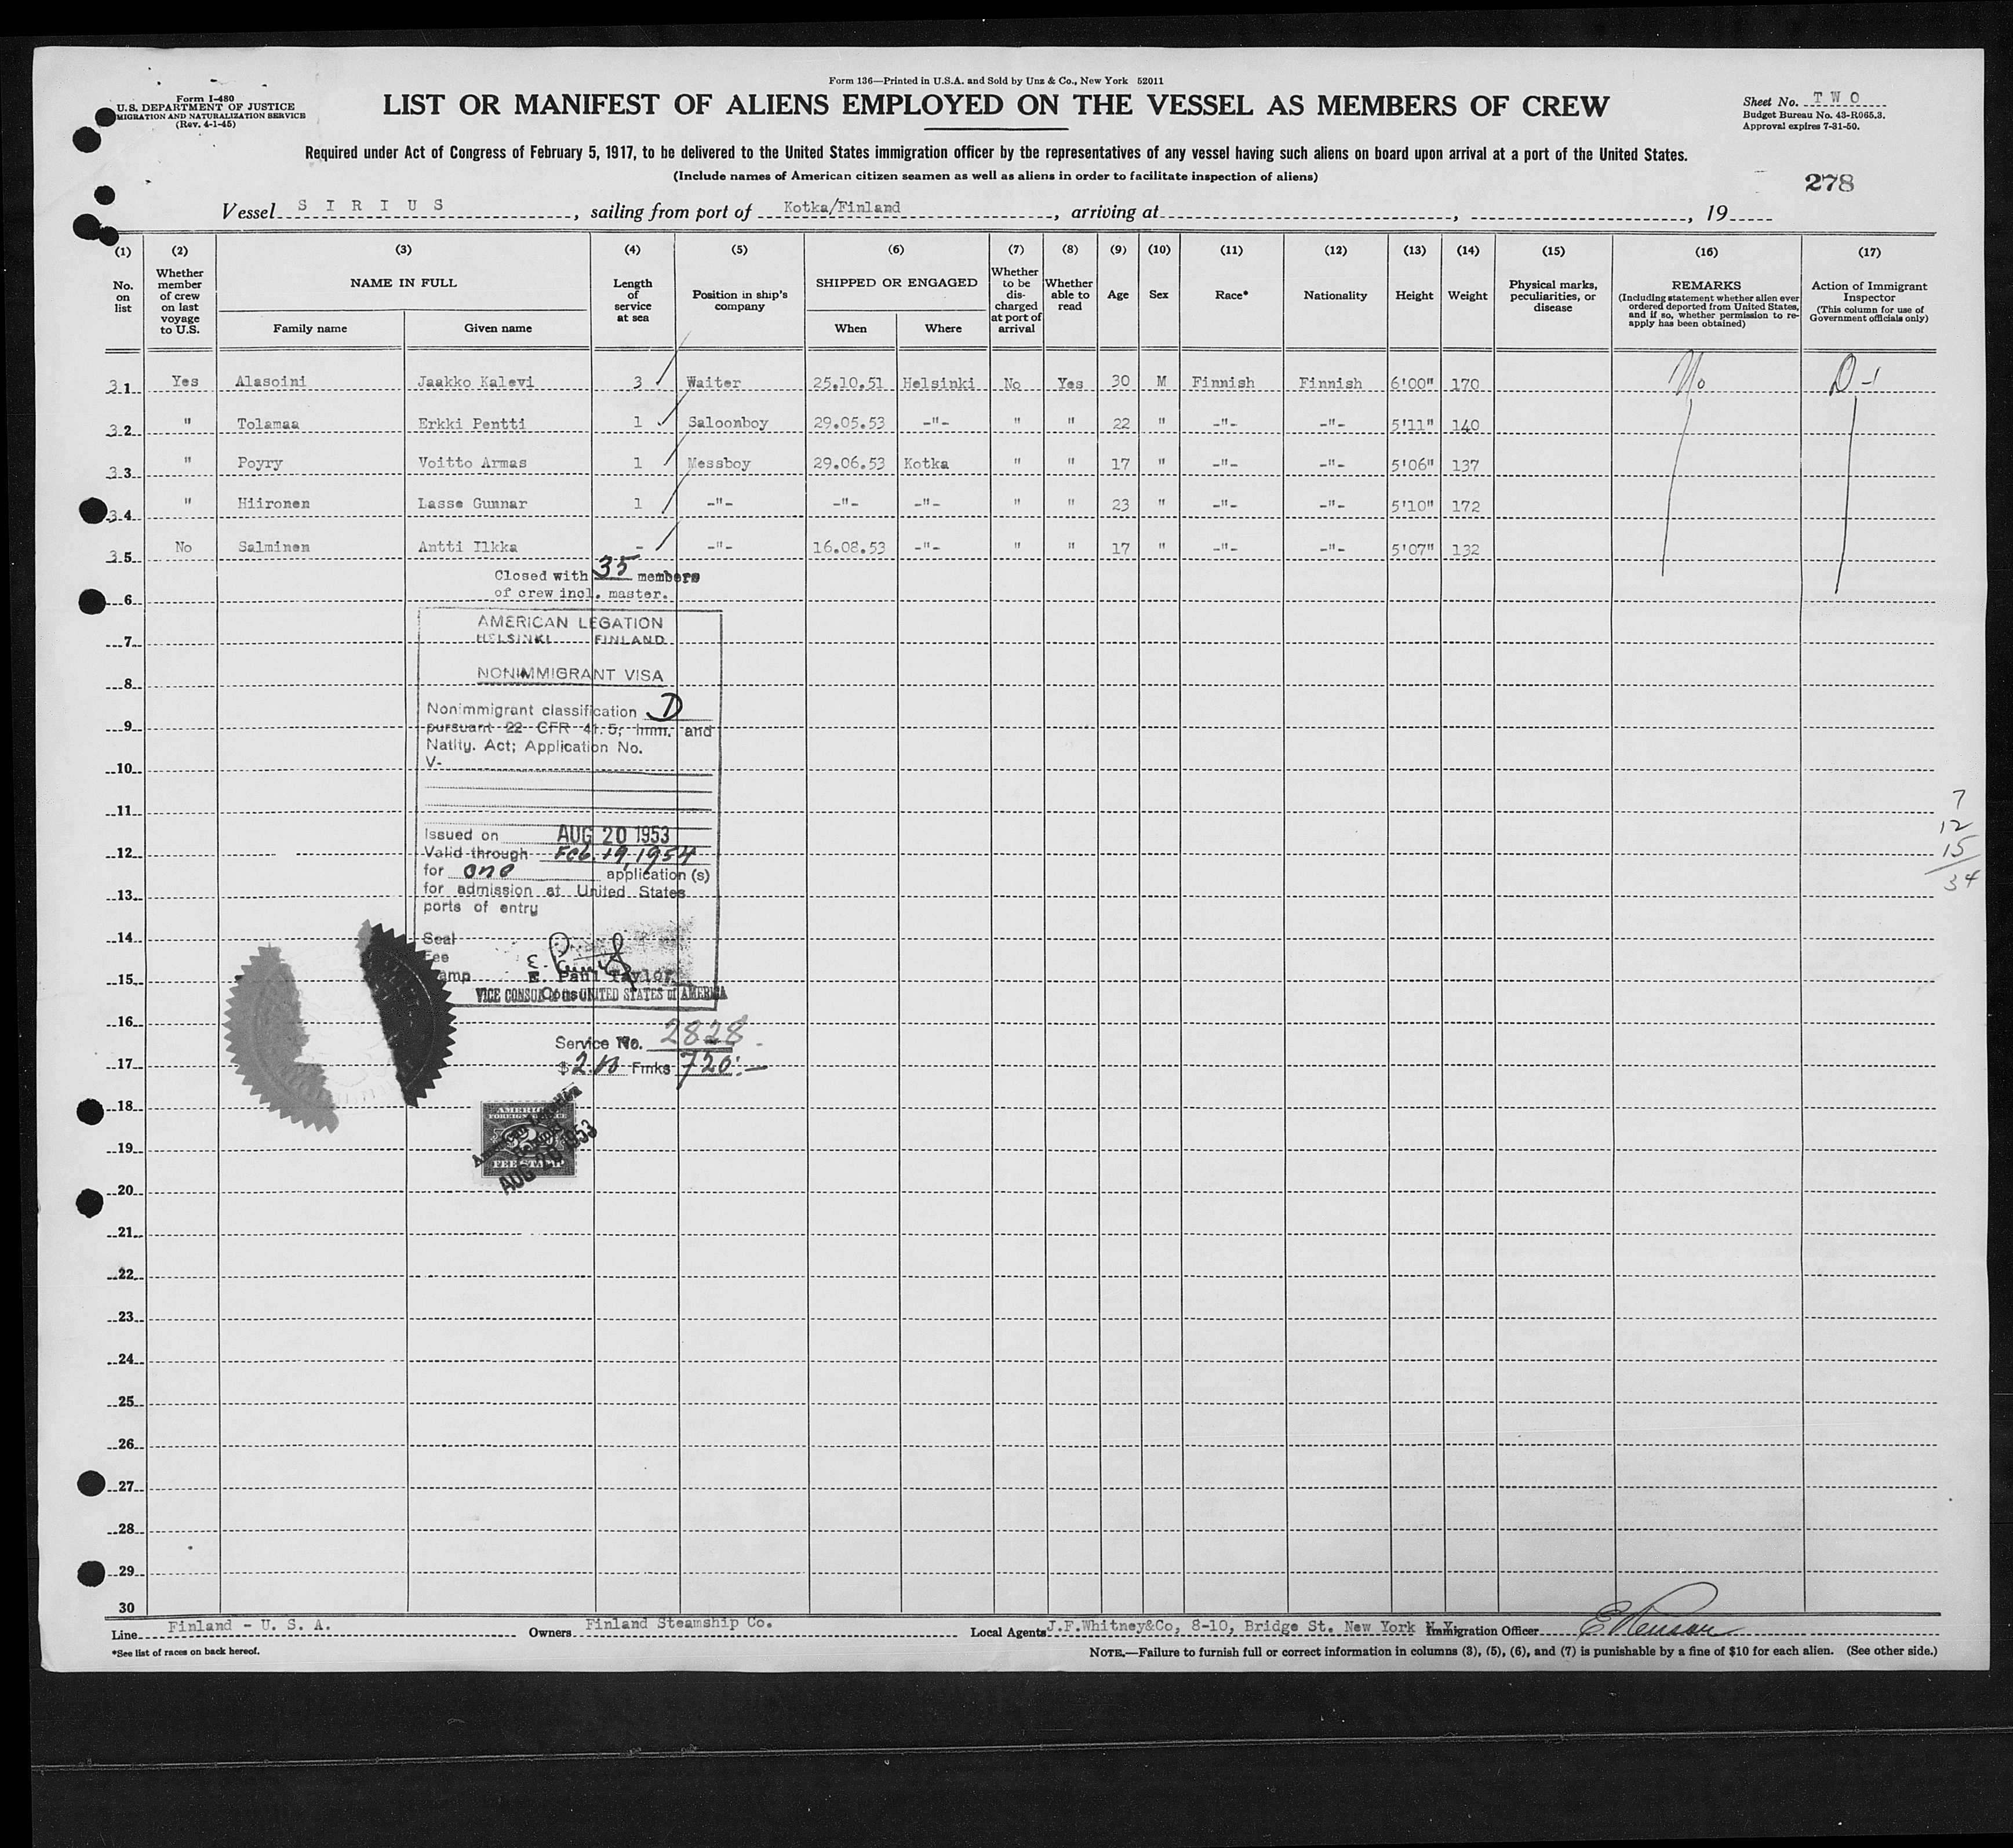 Form 136—Printed in U.S.A. and Sold by Unz & Co., New York 52011
Form I-480
U.S. DEPARTMENT OF JUSTICE
MIGRATION AND NATURALIZATION SERVICE
(Rev. 4-1-45)
LIST OR MANIFEST OF ALIENS EMPLOYED ON THE VESSEL AS MEMBERS OF CREW
Sheet No. T W O
Budget Bureau No. 43-R065.3.
Approval expires 7-31-50.
Required under Act of Congress of February 5, 1917, to be delivered to the United States immigration officer by the representatives of any vessel having such aliens on board upon arrival at a port of the United States.
(Include names of American citizen seamen as well as aliens in order to facilitate inspection of aliens)
278
Vessel S I R I U S, sailing from port of Kotka/Finland, arriving at , , 19
(1) (2) (3) (4) (5) (6) (7) (8) (9) (10) (11) (12) (13) (14) (15) (16) (17)
No. on list
Whether member of crew on last voyage to U.S.
NAME IN FULL
Family name Given name
Length of service at sea
Position in ship's company
SHIPPED OR ENGAGED
When Where
Whether to be discharged at port of arrival
Whether able to read
Age
Sex
Race*
Nationality
Height
Weight
Physical marks, peculiarities, or disease
REMARKS
(Including statement whether alien ever ordered deported from United States, and if so, whether permission to re-apply has been obtained)
Action of Immigrant Inspector
(This column for use of Government officials only)
31 Yes Alasoini Jaakko Kalevi 3 Waiter 25.10.51 Helsinki No Yes 30 M Finnish Finnish 6'00" 170 No D-1
32 " Tolamaa Erkki Pentti 1 Saloonboy 29.05.53 -"- " " 22 " -"- -"- 5'11" 140
33 " Poyry Voitto Armas 1 Messboy 29.06.53 Kotka " " 17 " -"- -"- 5'06" 137
34 " Hiironen Lasse Gunnar 1 -"- -"- -"- " " 23 " -"- -"- 5'10" 172
35 No Salminen Antti Ilkka - -"- 16.08.53 -"- " " 17 " -"- -"- 5'07" 132
Closed with 35 members
of crew incl. master.
6
AMERICAN LEGATION
HELSINKI FINLAND
7
NONIMMIGRANT VISA
8
Nonimmigrant classification D
9
pursuant 22 CFR 41.5; Imm. and
Natlty. Act; Application No.
V-
10
11
Issued on AUG 20 1953
12
Valid through Feb. 19, 1954
for one application (s)
for admission at United States
13
ports of entry
7
12
15
34
14
Seal
Fee
Stamp
15
E. Paul Taylor
VICE CONSUL of the UNITED STATES of AMERICA
16
Service No. 2828
17
$ Fmks 720:-
18
AMERICAN
FOREIGN SERVICE
2
FEE STAMP
American Legation
Helsinki
AUG 20 1953
19
20
21
22
23
24
25
26
27
28
29
30
Line Finland - U. S. A. Owners Finland Steamship Co. Local Agents J.F.Whitney&Co, 8-10, Bridge St. New York N.Y. Immigration Officer
*See list of races on back hereof.
NOTE.—Failure to furnish full or correct information in columns (3), (5), (6), and (7) is punishable by a fine of $10 for each alien. (See other side.)